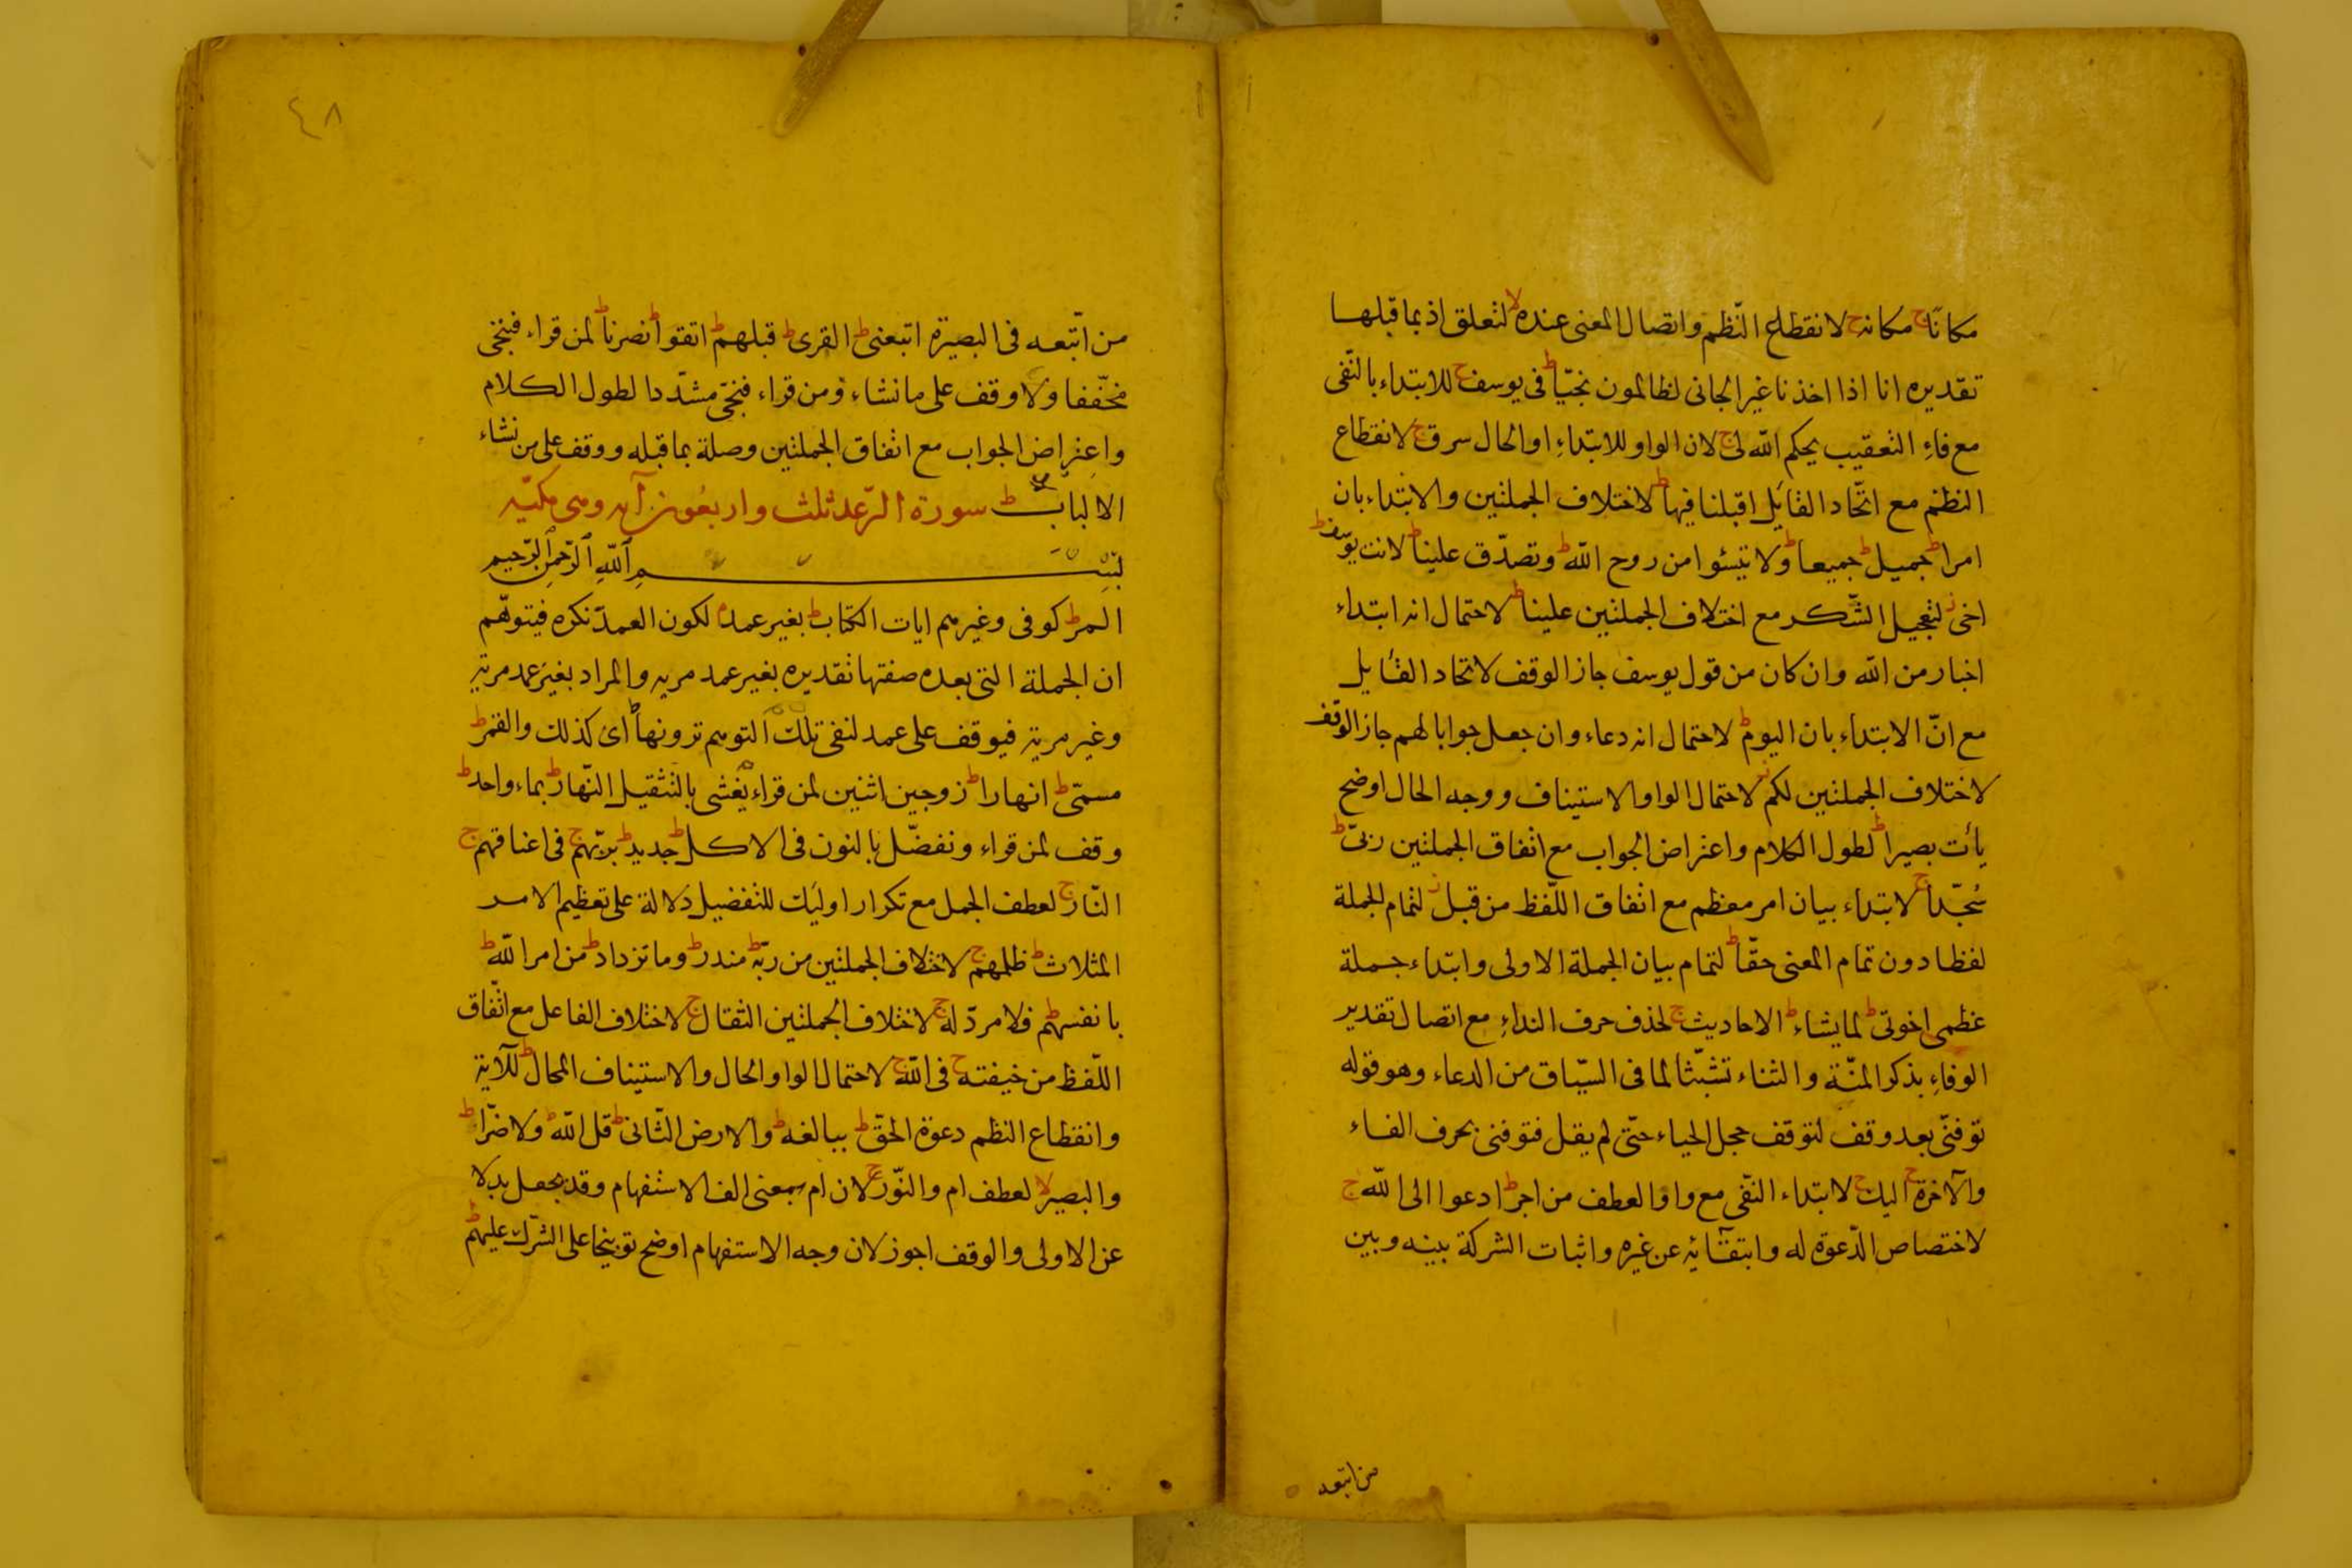 مكانًا ج مكانه ج لانقطاع النّظم واتصال المعنى عنده لا لتعلق اذ بما قبلها
تقديره انا اذا اخذنا غير الجانى لظالمون نجيّا ط فى يوسف ج للابتداء بالنّفى
مع فاءِ التعقيب يحكم الله لى ج لان الواو للابتداءِ او الحال سرق ج لانقطاع
النظم مع اتّحاد القايل اقبلنا فيها ط لاختلاف الجملتين والابتداء بان
امرا ط جميل ط جميعا ط ولا تيئسوا من روح الله ط وتصدّق علينا ط لانت يوسف ط
اخى ز لتعجيل الشّكر مع اختلاف الجملتين علينا ط لاحتمال انه ابتداء
اخبار من الله وان كان من قول يوسف جاز الوقف لاتحاد القايل
مع انّ الابتداء بان اليوم ط لاحتمال انه دعاء وان جعل جوابا لهم جاز الوقف
لاختلاف الجملتين لكم ز لاحتمال الواو الاستيناف ووجه الحال اوضح
يأت بصيرا ط لطول الكلام واعتراض الجواب مع اتفاق الجملتين ربىّ ط
سُجّدا ج لابتداء بيان امر معظم مع اتفاق اللّفظ من قبل ز لتمام الجملة
لفظا دون تمام المعنى حقّا ط لتمام بيان الجملة الاولى وابتداء جملة
عظمى اخوتى ط لما يشاء ط الاحاديث ج لحذف حرف النداءِ مع اتصال تقدير
الوفاءِ بذكر المنّة والثناء تشبّثا لما فى السّياق من الدعاء وهو قوله
توفنّى بعد وقف لتوقف خجل الحياء حتّى لم يقل فتوفنى بحرف الفاء
والآخرة ج اليك ج لابتداء النّفى مع واو العطف من اجر ط ادعوا الى الله ج
لاختصاص الدّعوة له وانتفائه عن غيره واثبات الشركة بينه وبين
من اتبعه
٤٨
من اتّبعه فى البصيرة اتبعنى ط القرى ط قبلهم ط اتقوا ط نصرنا ط لمن قراء فننجى
مخفّفا ولا وقف على ما نشاء ومن قراء فنجّى مشدّدا لطول الكلام
واعتراض الجواب مع اتفاق الجملتين وصلة بما قبله ووقف على من نشاء
الالباب ط سورة الرّعد ثلث واربعُون آيه وهى مكيّه
بِسْمِ اللهِ الرّحمنِ الرّحيم
المر ط كوفى وغيرهم ايات الكتاب ط بغير عمد لكون العمد نكره فيتوهّم
ان الجملة التى بعده صفتها تقديره بغير عمد مريه والمراد بغير عمد مرئية
وغير مرية فيوقف على عمد لنفى تلك التوهم ترونها اى كذلك والقمر ط
مسمّى ط انهارا ط زوجين اثنين لمن قراء يُغشى بالتثقيل النّهار ط بماء واحد ط
وقف لمن قراء ونفضّل بالنون فى الاكل ط جديد ط بربّهم ج فى اعناقهم ج
النّار ج لعطف الجمل مع تكرار اوليك للتفضيل دلالة على تعظيم الامر
المثلات ط ظلمهم ج لاختلاف الجملتين من ربّه ط منذر ط وما تزداد ط من امر الله ط
بانفسهم ط فلا مردّ له ج لاختلاف الجملتين الثقال ج لاختلاف الفاعل مع اتّفاق
اللّفظ من خيفته ج فى الله ج لاحتمال الواو الحال والاستيناف المحال ط للآية
وانقطاع النظم دعوة الحقّ ط ببالغه ط والارض الثّانى ط قل الله ط ولا ضرّا ط
والبصير لا لعطف ام والنّور ج لان ام بمعنى الف الاستفهام وقد يجعل بدلا
عن الاولى والوقف اجوز لان وجه الاستفهام اوضح توبيخا على الشّرك عليهم ط